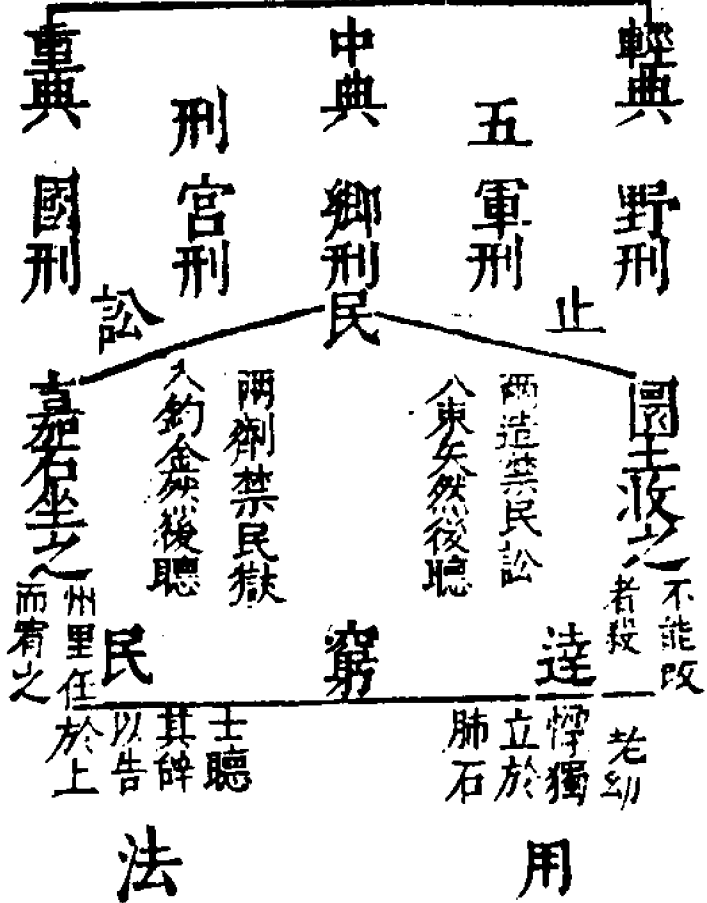 輕典
中典
重典
五刑
野刑
軍刑
鄉刑
宮刑
國刑
止民訟
圜土收之
不能改
者殺
兩造禁民訟
入束矢然後聽
兩劑禁民獄
入鈞金然後聽
嘉石坐之
州里任
而宥之
達窮民
老幼
惸獨
立於
肺石
士聽
其辭
以告
於上
用法